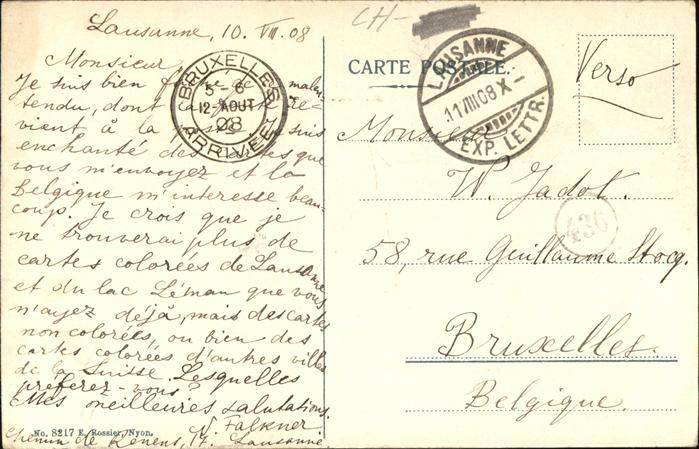 Lausanne, 10. VIII. 08
Monsieur,
Je suis bien malen-
tendu, dont re-
vient à la Je suis
enchanté des cartes que
vous m'envoyez et la
Belgique m'intéresse beau-
coup. Je crois que je
ne trouverai plus de
cartes colorées de Lausanne
et du lac Léman que vous
n'ayez déjà, mais des cartes
non colorées, ou bien des
cartes colorées d'autres villes
de la Suisse. Lesquelles
préférez-vous?
Mes meilleures salutations.
Falkner
Chemin de Renens, 17. Lausanne
No. 8217 E. Rossier, Nyon.
BRUXELLES
5-6
12-AOUT
08
ARRIVÉE
CH-
CARTE POSTALE.
LAUSANNE
11 VIII 08 X-
EXP. LETTR.
Verso
Monsieur
W. Jadot.
436
58, rue Guillaume Stocq.
Bruxelles.
Belgique.